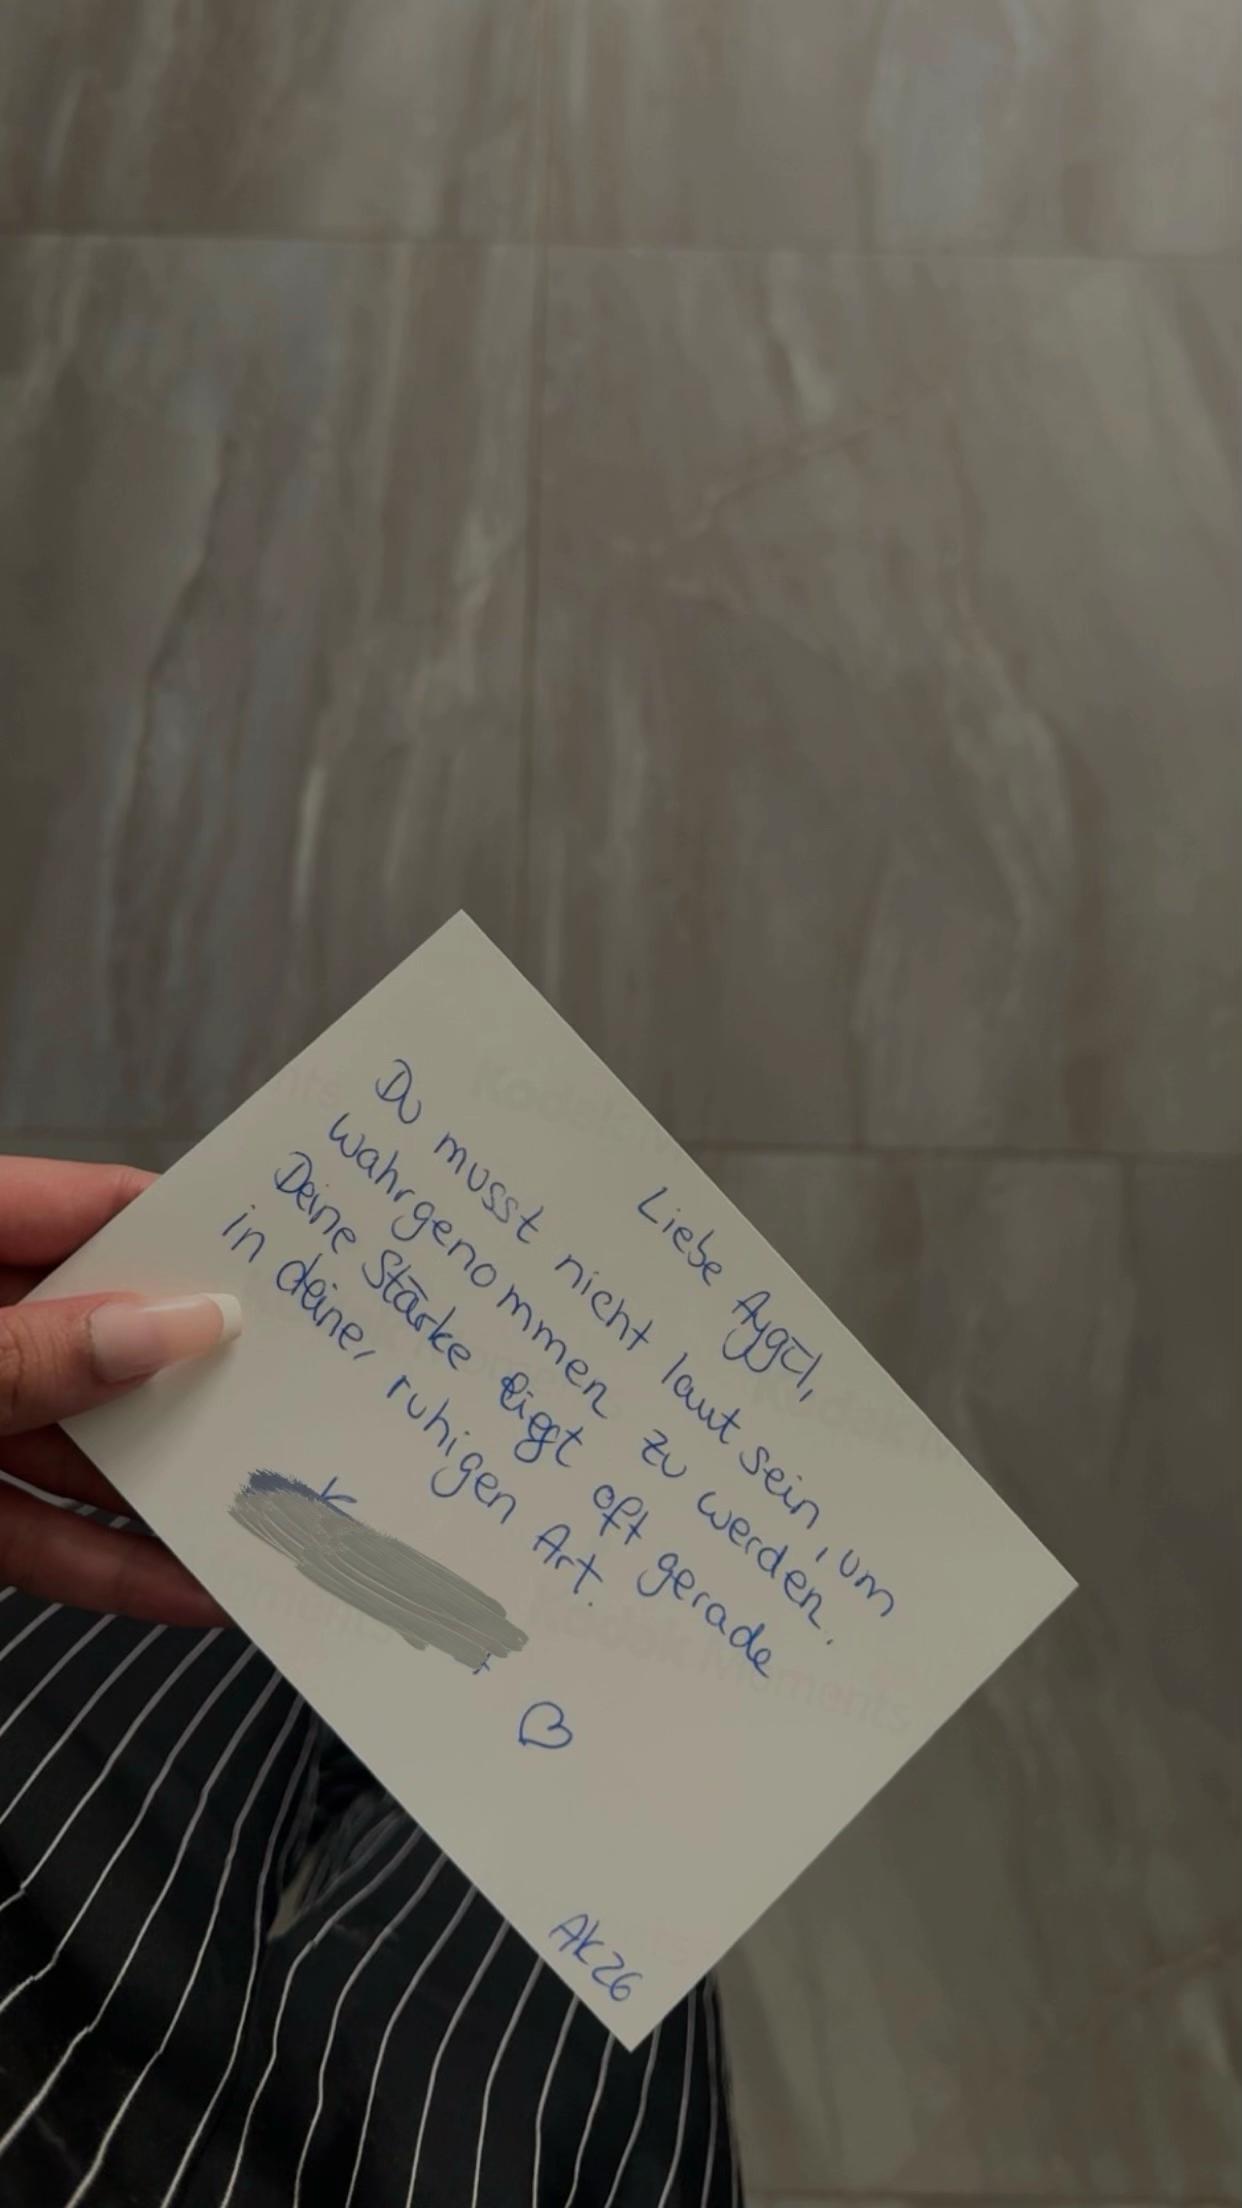 Liebe Aygül,
Du musst nicht laut sein, um
wahrgenommen zu werden.
Deine Stärke liegt oft gerade
in deiner ruhigen Art.
♡
AK26
Kodak Moments